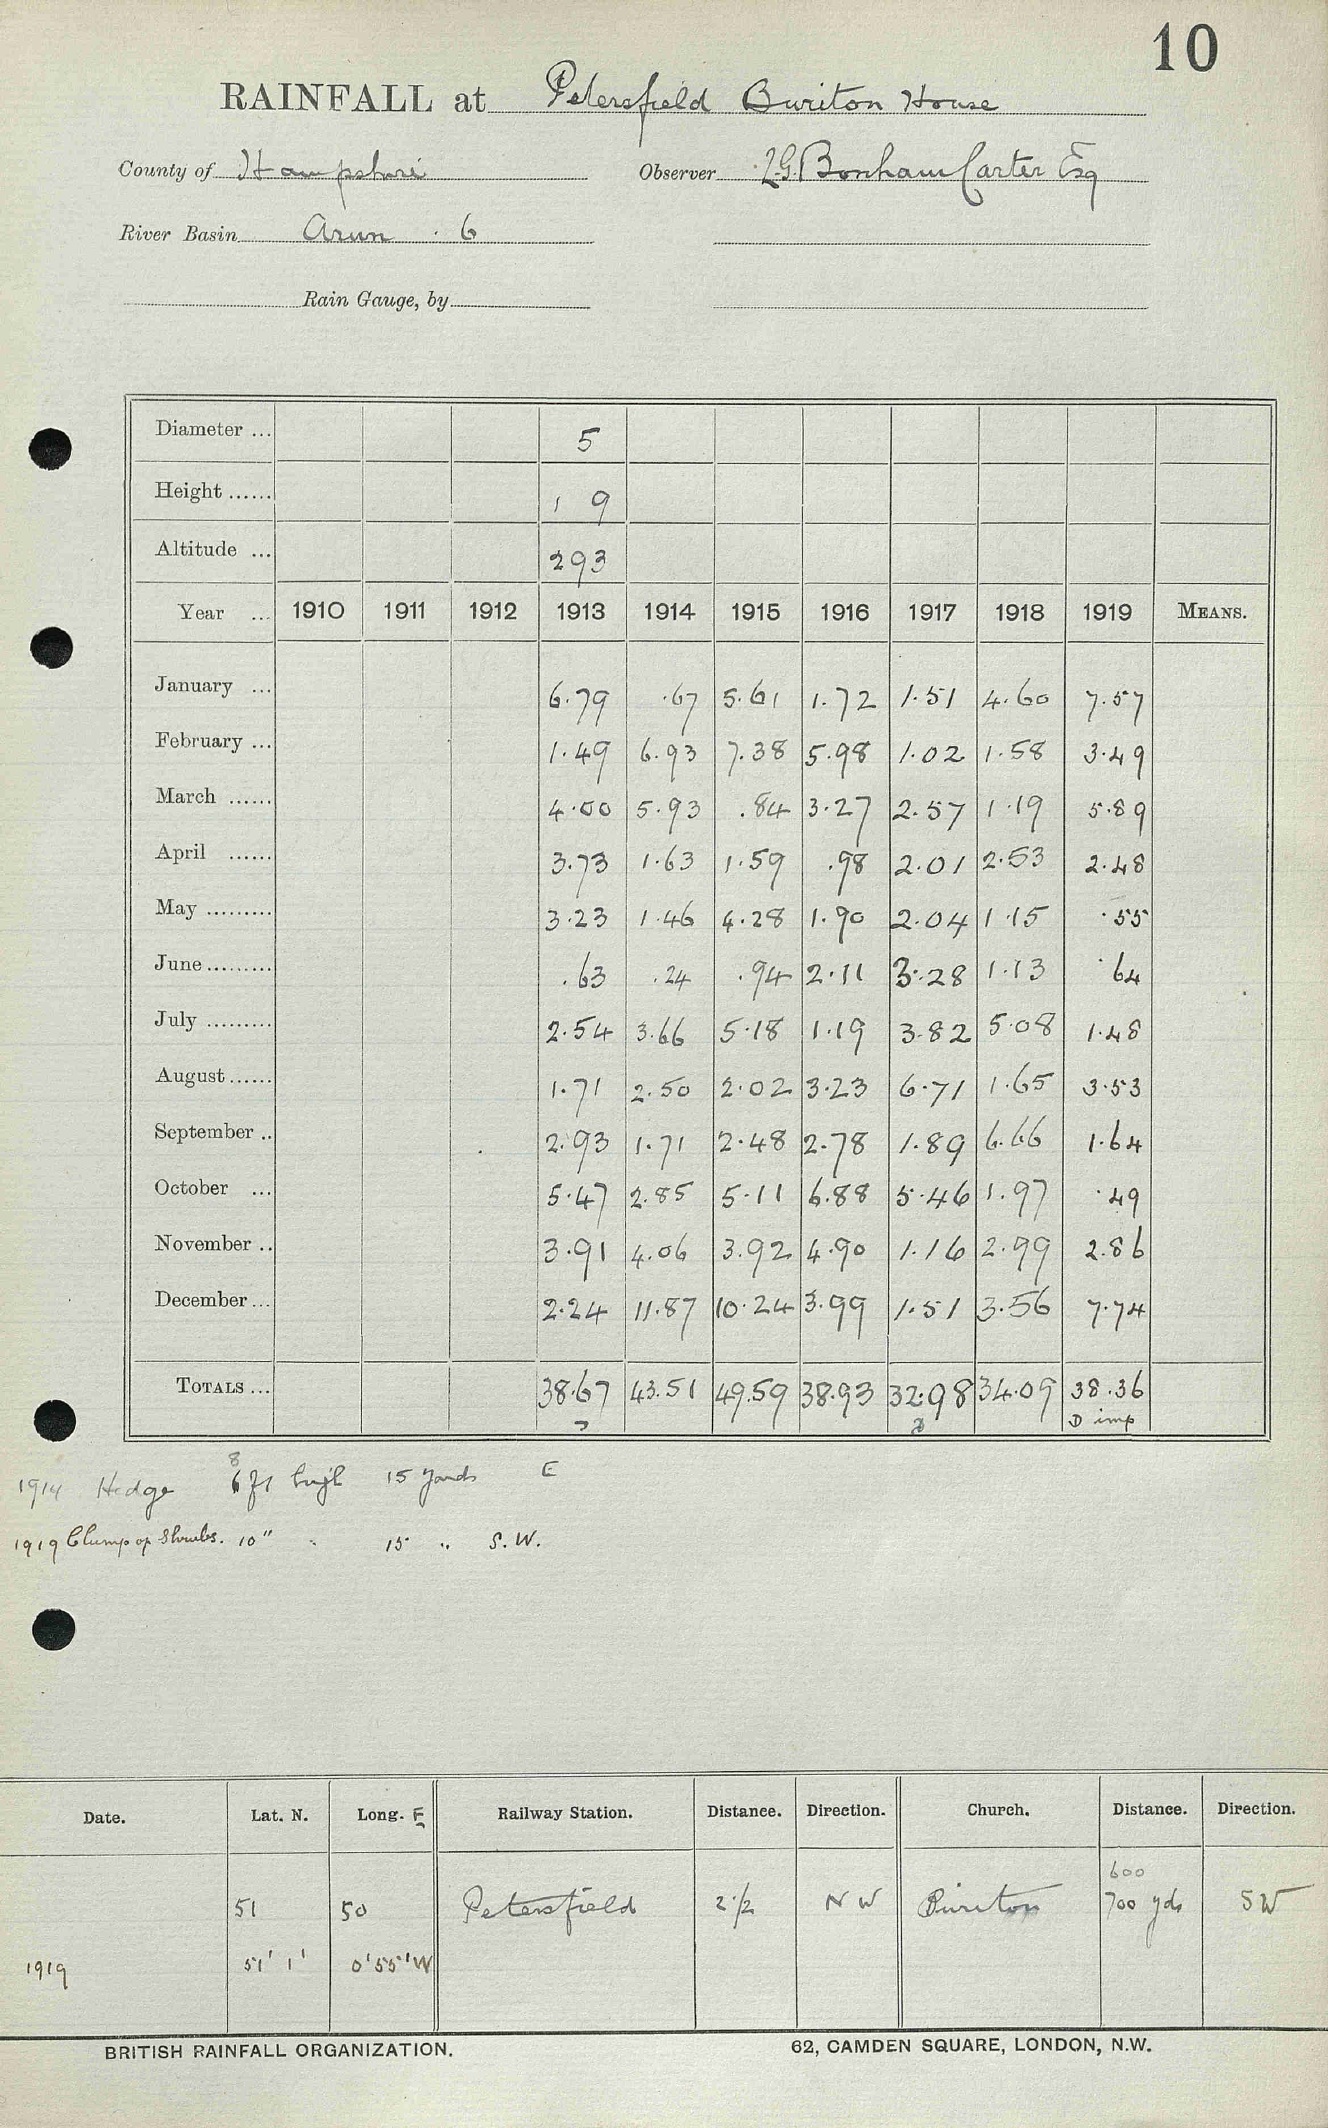 10
RAINFALL at Petersfield Buriton House
County of Hampshire Observer L.G. Bonham Carter Esq
River Basin Arun . 6
Rain Gauge, by
Diameter ... 5
Height ...... 1 9
Altitude ... 293
Year ... 1910 1911 1912 1913 1914 1915 1916 1917 1918 1919 MEANS.
January ... 6.79 .67 5.61 1.72 1.51 4.60 7.57
February ... 1.49 6.93 7.38 5.98 1.02 1.58 3.49
March ...... 4.00 5.93 .84 3.27 2.57 1.19 5.89
April ...... 3.73 1.63 1.59 .98 2.01 2.53 2.48
May ......... 3.23 1.46 4.28 1.90 2.04 1.15 .55
June ......... .63 .24 .94 2.11 3.28 1.13 .64
July ......... 2.54 3.66 5.18 1.19 3.82 5.08 1.48
August ...... 1.71 2.50 2.02 3.23 6.71 1.65 3.53
September .. 2.93 1.71 2.48 2.78 1.89 6.66 1.64
October ... 5.47 2.85 5.11 6.88 5.46 1.97 .49
November .. 3.91 4.06 3.92 4.90 1.16 2.99 2.86
December ... 2.24 11.87 10.24 3.99 1.51 3.56 7.74
TOTALS ... 38.67 43.51 49.59 38.93 32.98 34.09 38.36
D imp
8
1914 Hedge 6 ft high 15 yards E
1919 Clump of Shrubs. 10 " " 15 " S.W.
Date. Lat. N. Long. E Railway Station. Distance. Direction. Church. Distance. Direction.
600
51 50 Petersfield 2 1/2 N W Buriton 700 yds SW
1919 51' 1' 0'55'W
BRITISH RAINFALL ORGANIZATION. 62, CAMDEN SQUARE, LONDON, N.W.